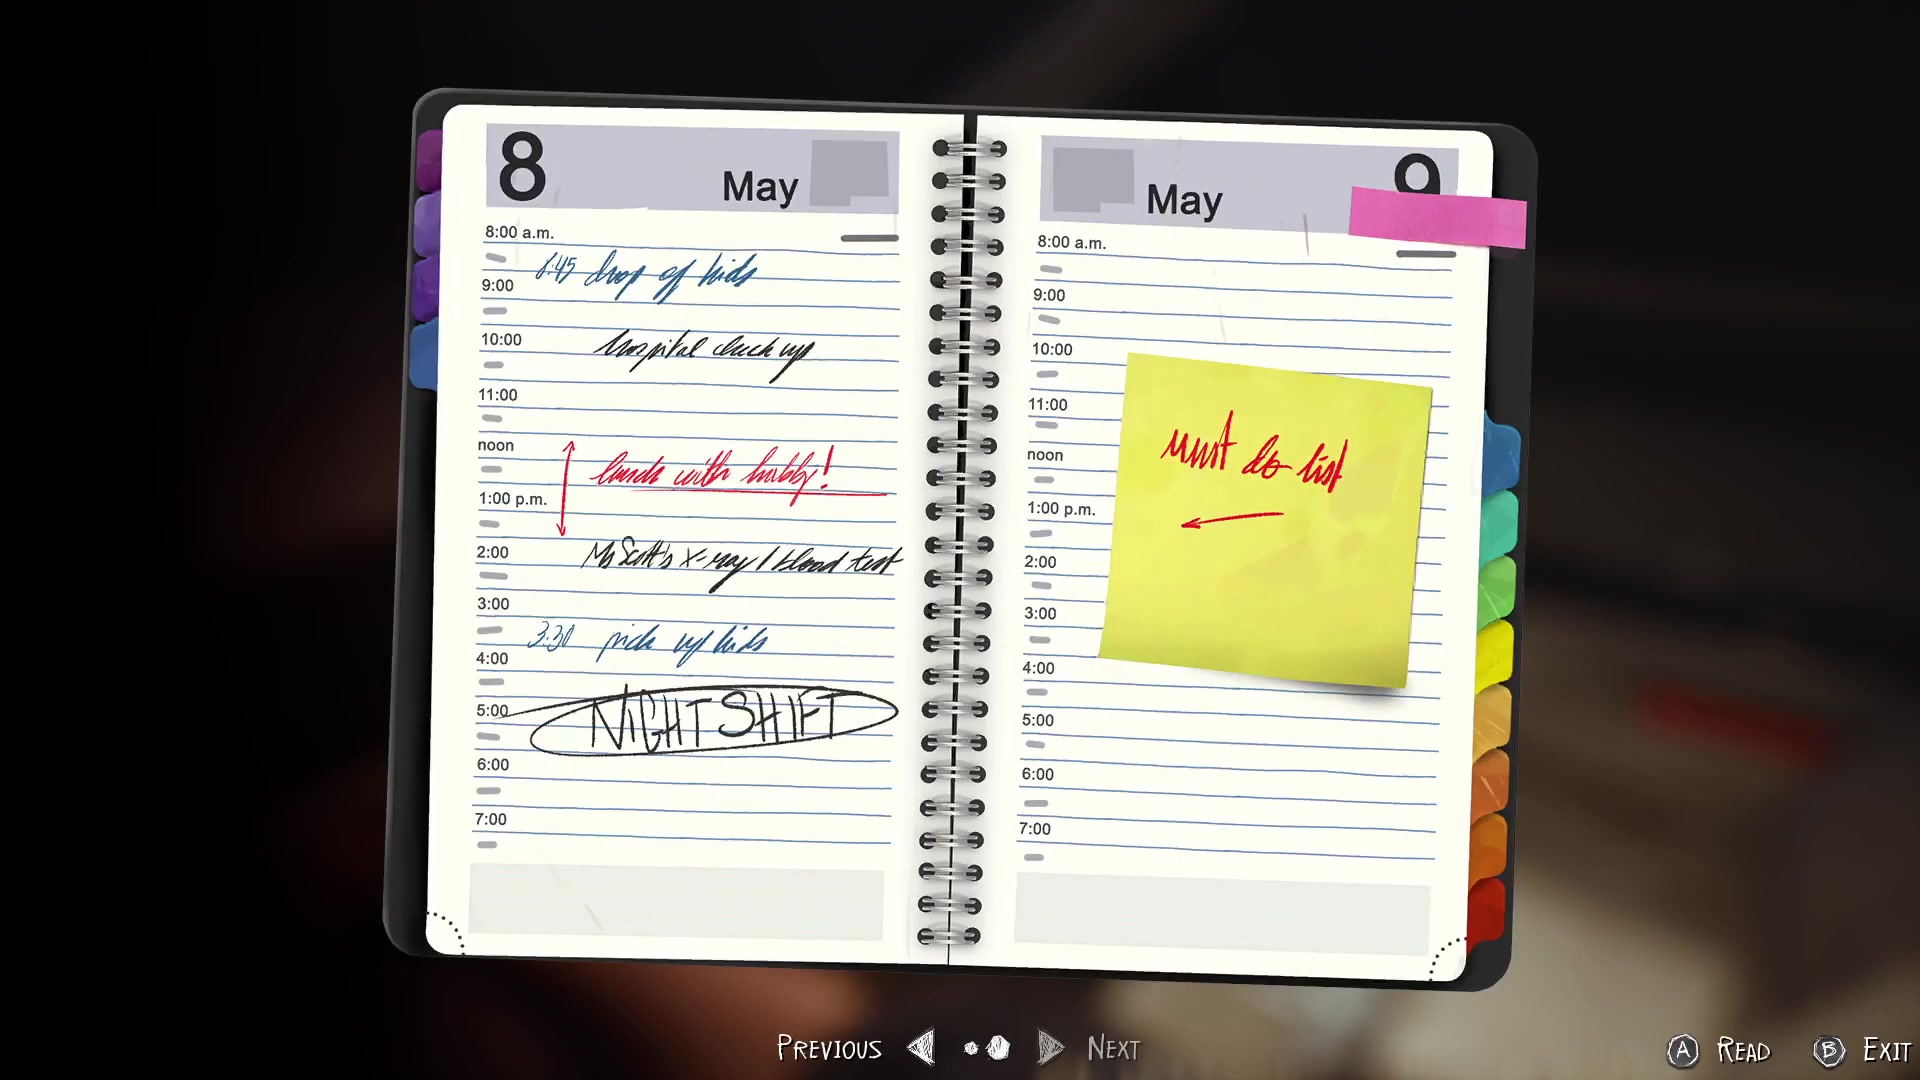 8
May
8:00 a.m.
8:45 drop of kids
9:00
10:00
hospital check up
11:00
noon
lunch with hubby!
1:00 p.m.
2:00
Mr Scott's x-ray / blood test
3:00
3:30 pick up kids
4:00
5:00
NIGHT SHIFT
6:00
7:00
May
9
8:00 a.m.
9:00
10:00
11:00
must do list
noon
1:00 p.m.
2:00
3:00
4:00
5:00
6:00
7:00
PREVIOUS NEXT
A READ B EXIT